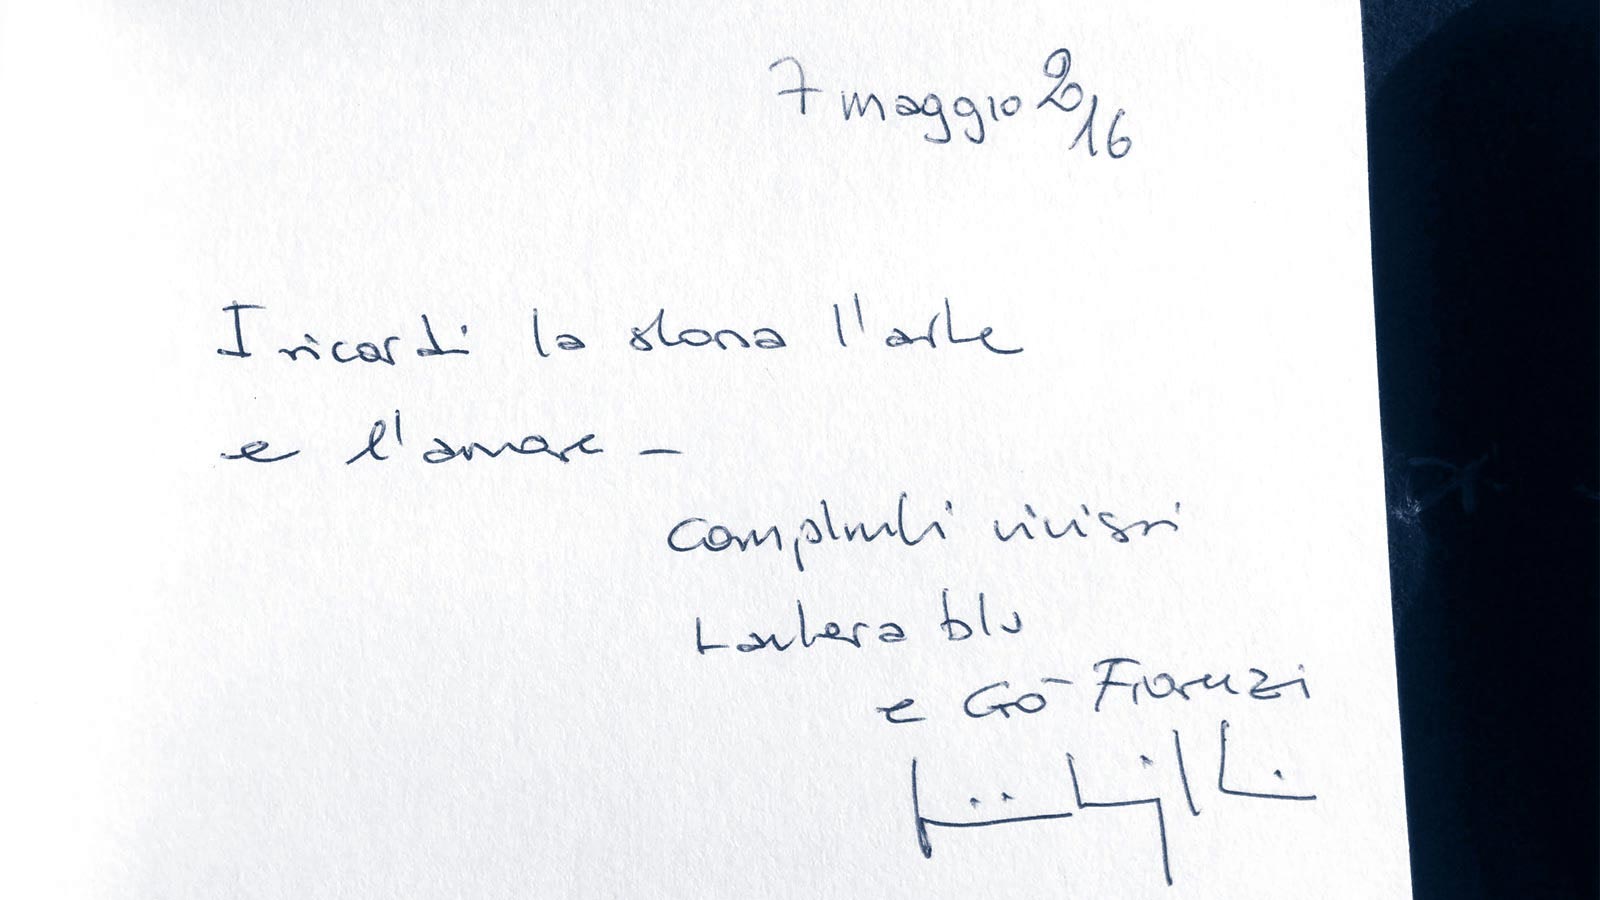 7 maggio 2016
I ricordi la storia l'arte
e l'amore –
complimenti vivissimi
Lanterna blu
e Giò Fiorenzi